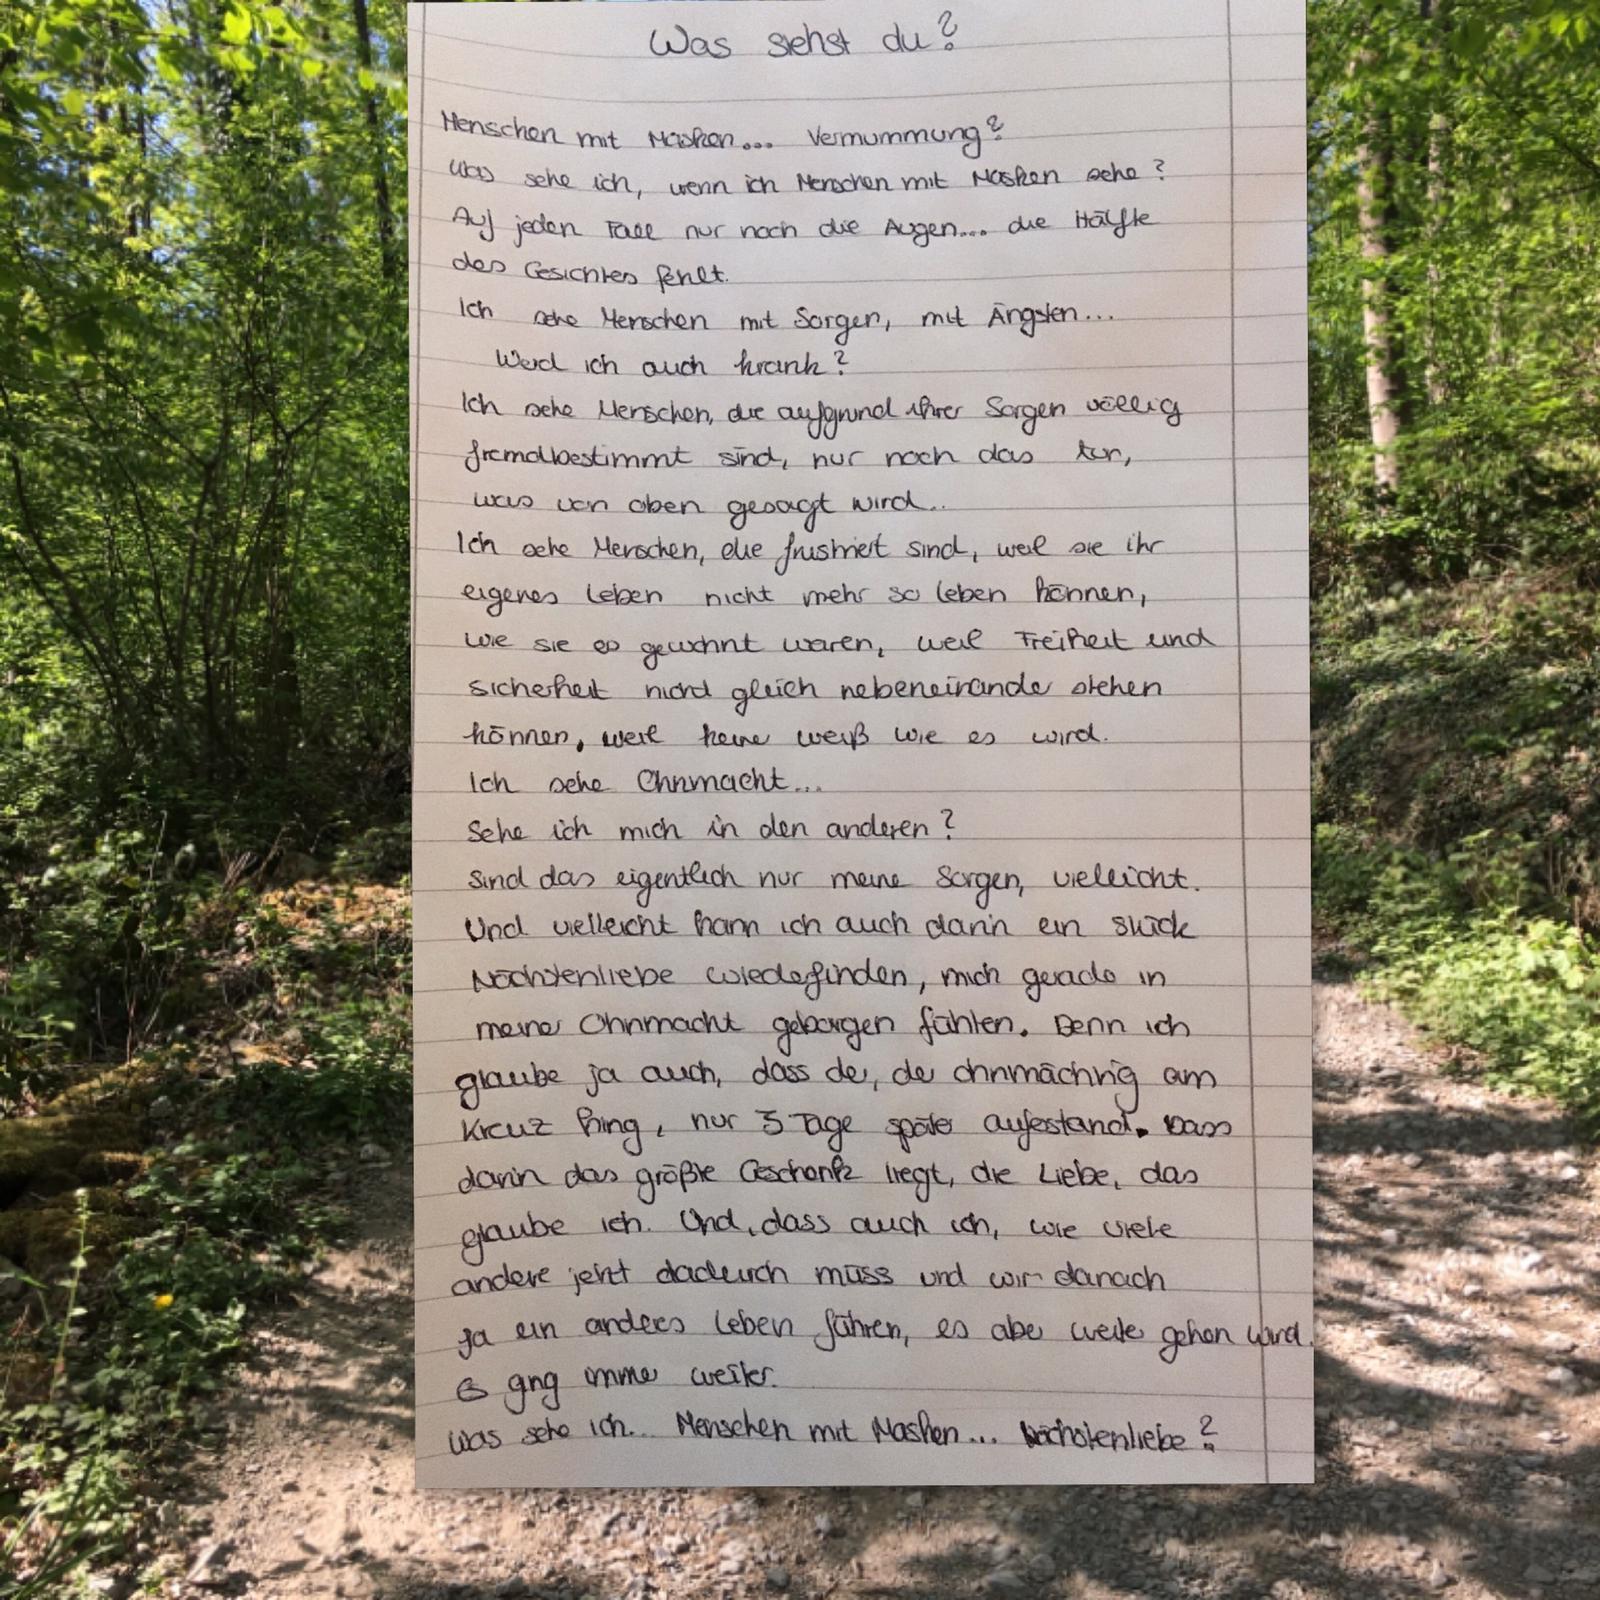 Was siehst du?
Menschen mit Masken... Vermummung?
Was sehe ich, wenn ich Menschen mit Masken sehe?
Auf jeden Fall nur noch die Augen... die Hälfte
des Gesichtes fehlt.
Ich sehe Menschen mit Sorgen, mit Ängsten...
Werd ich auch krank?
Ich sehe Menschen, die aufgrund ihrer Sorgen völlig
fremdbestimmt sind, nur noch das tun,
was von oben gesagt wird..
Ich sehe Menschen, die frustriert sind, weil sie ihr
eigenes Leben nicht mehr so leben können,
wie sie es gewohnt waren, weil Freiheit und
Sicherheit nicht gleich nebeneinander stehen
können, weil keiner weiß wie es wird.
Ich sehe Ohnmacht...
Sehe ich mich in den anderen?
Sind das eigentlich nur meine Sorgen, vielleicht.
Und vielleicht kann ich auch darin ein Stück
Nächstenliebe wiederfinden, mich gerade in
meiner Ohnmacht geborgen fühlen. Denn ich
glaube ja auch, dass der, der ohnmächtig am
Kreuz hing, nur 3 Tage später auferstand. Dass
darin das größte Geschenk liegt, die Liebe, das
glaube ich. Und, dass auch ich, wie viele
andere jetzt dadurch muss und wir danach
ja ein anderes Leben führen, es aber weiter gehen wird.
Es ging immer weiter.
Was sehe ich... Menschen mit Masken... Nächstenliebe?